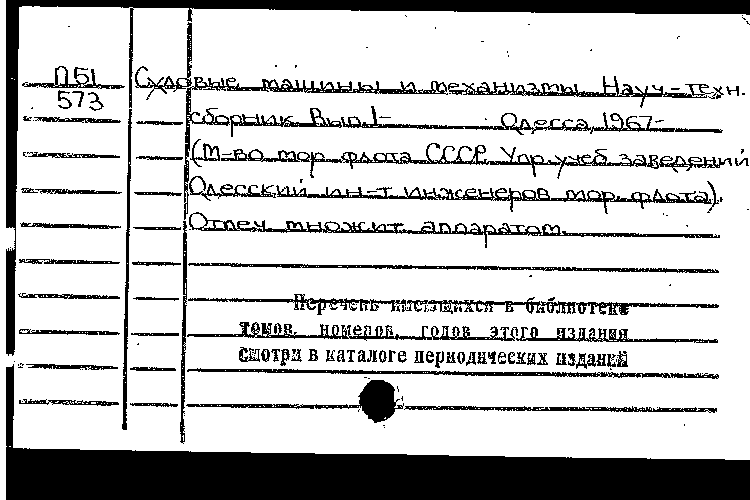 П51
573
Судовые машины и механизмы. Науч.-техн.
сборник. Вып. 1-
Одесса, 1967-
(М-во мор. флота СССР. Упр. учеб. заведений
Одесский ин-т инженеров мор. флота).
Отпеч. множит. аппаратом.
Перечень имеющихся в библиотеке
томов, номеров, годов этого издания
смотри в каталоге периодических изданий